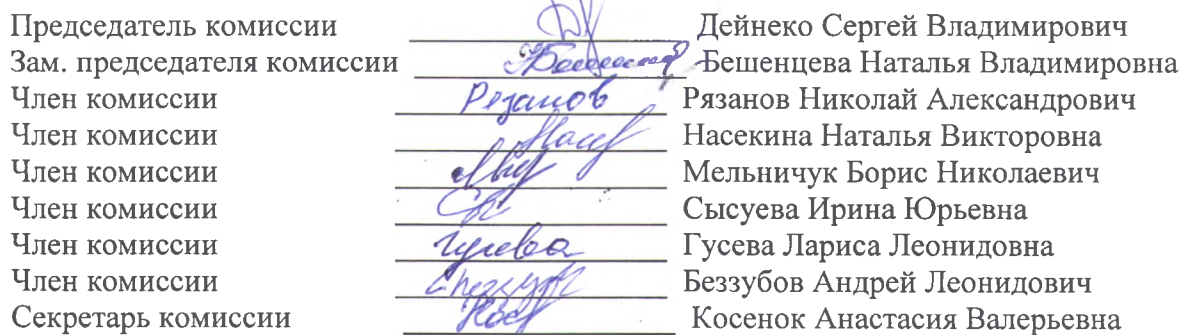 Председатель комиссии Дейнеко Сергей Владимирович
Зам. председателя комиссии Бешенцева Наталья Владимировна
Член комиссии Рязанов Рязанов Николай Александрович
Член комиссии Насекина Наталья Викторовна
Член комиссии Мельничук Борис Николаевич
Член комиссии Сысуева Ирина Юрьевна
Член комиссии Гусева Гусева Лариса Леонидовна
Член комиссии Беззубов Андрей Леонидович
Секретарь комиссии Косенок Анастасия Валерьевна